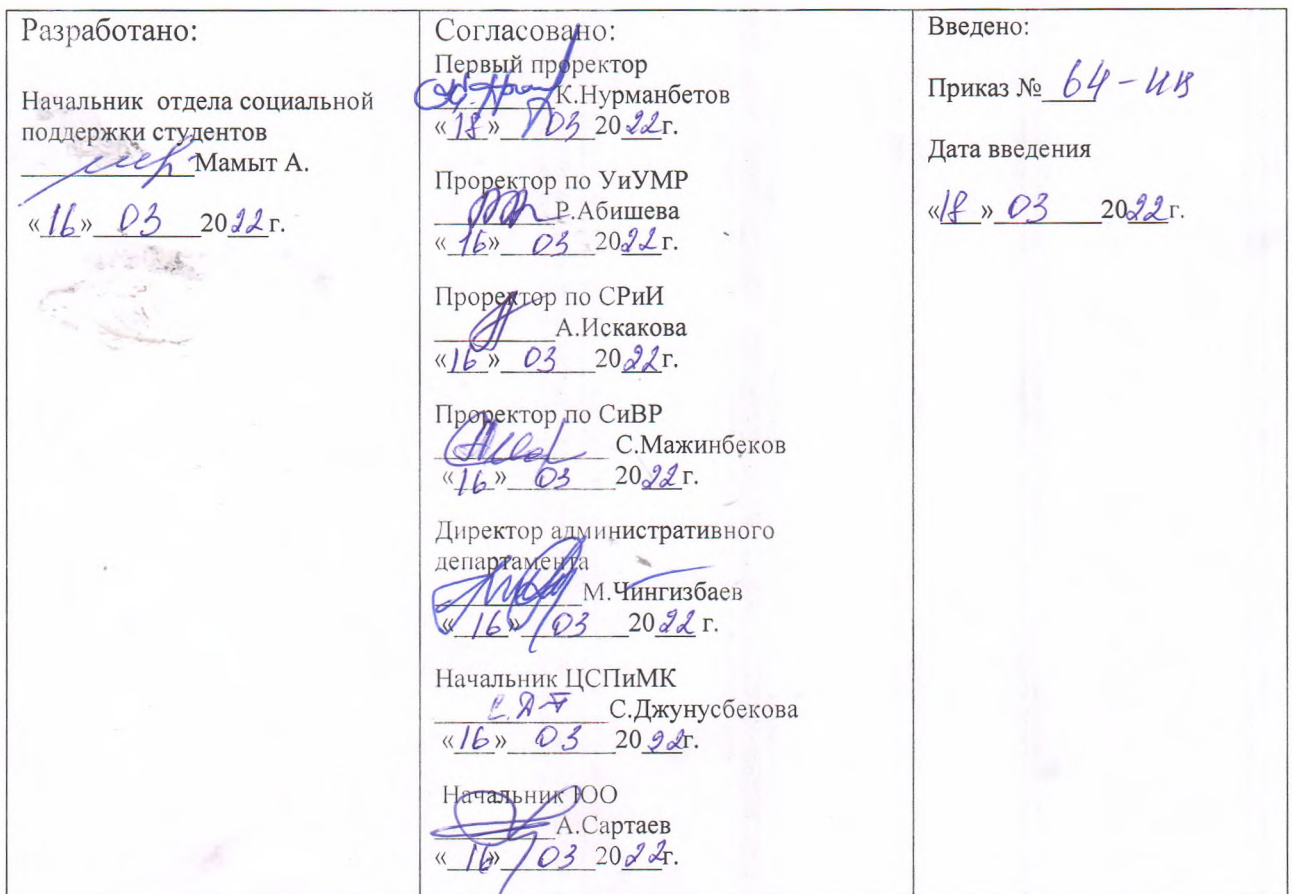 Разработано:
Начальник отдела социальной
поддержки студентов
Мамыт А.
«16» 03 2022г.
Согласовано:
Первый проректор
К.Нурманбетов
«18» 03 2022г.
Проректор по УиУМР
Р.Абишева
«16» 03 2022г.
Проректор по СРиИ
А.Искакова
«16» 03 2022г.
Проректор по СиВР
С.Мажинбеков
«16» 03 2022г.
Директор административного
департамента
М.Чингизбаев
«16» 03 2022 г.
Начальник ЦСПиМК
С.Джунусбекова
«16» 03 2022г.
Начальник ЮО
А.Сартаев
«16» 03 2022г.
Введено:
Приказ № 64-ИВ
Дата введения
«18» 03 2022г.